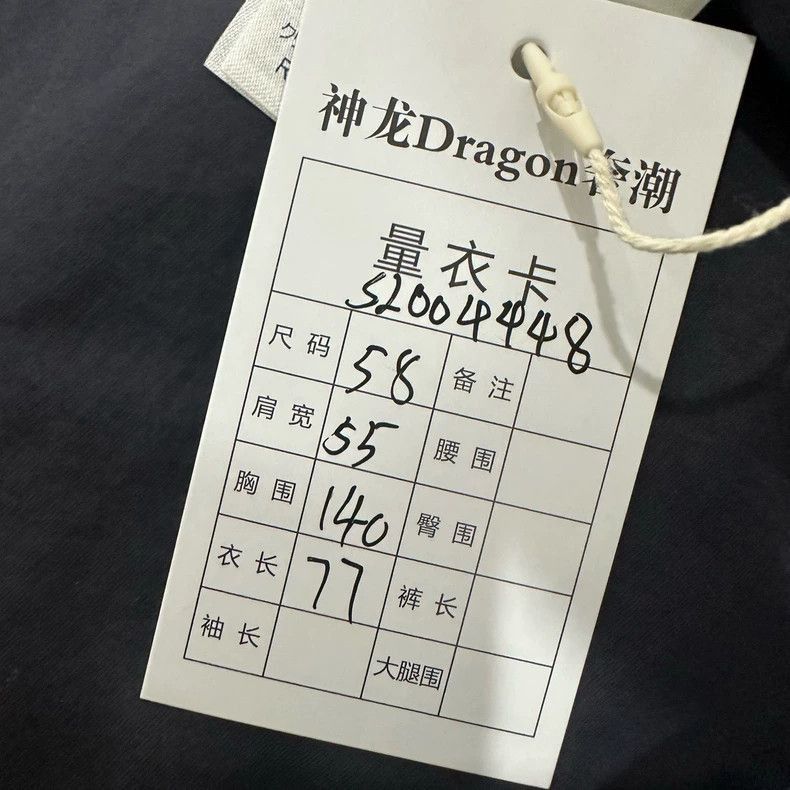 神龙Dragon奢潮
量衣卡
S2004448
尺码 58 备注
肩宽 55 腰围
胸围 140 臀围
衣长 77 裤长
袖长 大腿围